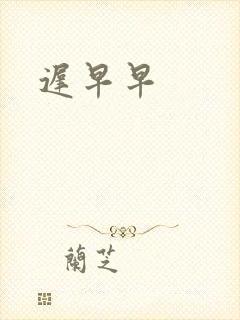 遲早早
蘭芝